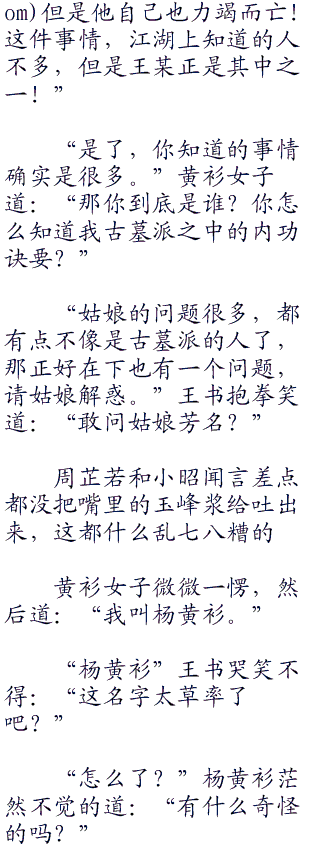 om)但是他自己也力竭而亡!
这件事情，江湖上知道的人
不多，但是王某正是其中之
一！”
“是了，你知道的事情
确实是很多。”黄衫女子
道：“那你到底是谁？你怎
么知道我古墓派之中的内功
诀要？”
“姑娘的问题很多，都
有点不像是古墓派的人了，
那正好在下也有一个问题，
请姑娘解惑。”王书抱拳笑
道：“敢问姑娘芳名？”
周芷若和小昭闻言差点
都没把嘴里的玉峰浆给吐出
来，这都什么乱七八糟的
黄衫女子微微一愣，然
后道：“我叫杨黄衫。”
“杨黄衫”王书哭笑不
得：“这名字太草率了
吧？”
“怎么了？”杨黄衫茫
然不觉的道：“有什么奇怪
的吗？”